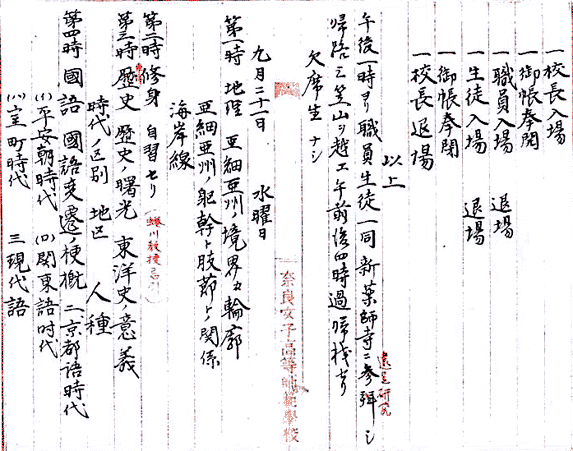 一校長入場
一御帳奉開
一職員入場　退場
一生徒入場　退場
一御帳奉閉
一校長退場
以上
午後一時ヨリ職員生徒一同新薬師寺ニ参拝シ
遠足研究
帰路三笠山ヲ越エ午前後四時過帰校セリ
欠席生 ナシ
九月二十一日　水曜日
第一時 地理 亜細亜州ノ境界及輪廓
亜細亜州 躯幹ト肢節トノ関係
海岸線
第二時 修身 自習セリ
第三時 歴史 歴史ノ曙光 東洋史ノ意義
時代ノ区別 地区 人種
第四時 國語 國語変遷ノ梗概 二、京都語時代
(イ)平安朝時代 (ロ)関東語時代
(ハ)室町時代 三現代語
奈良女子高等師範學校